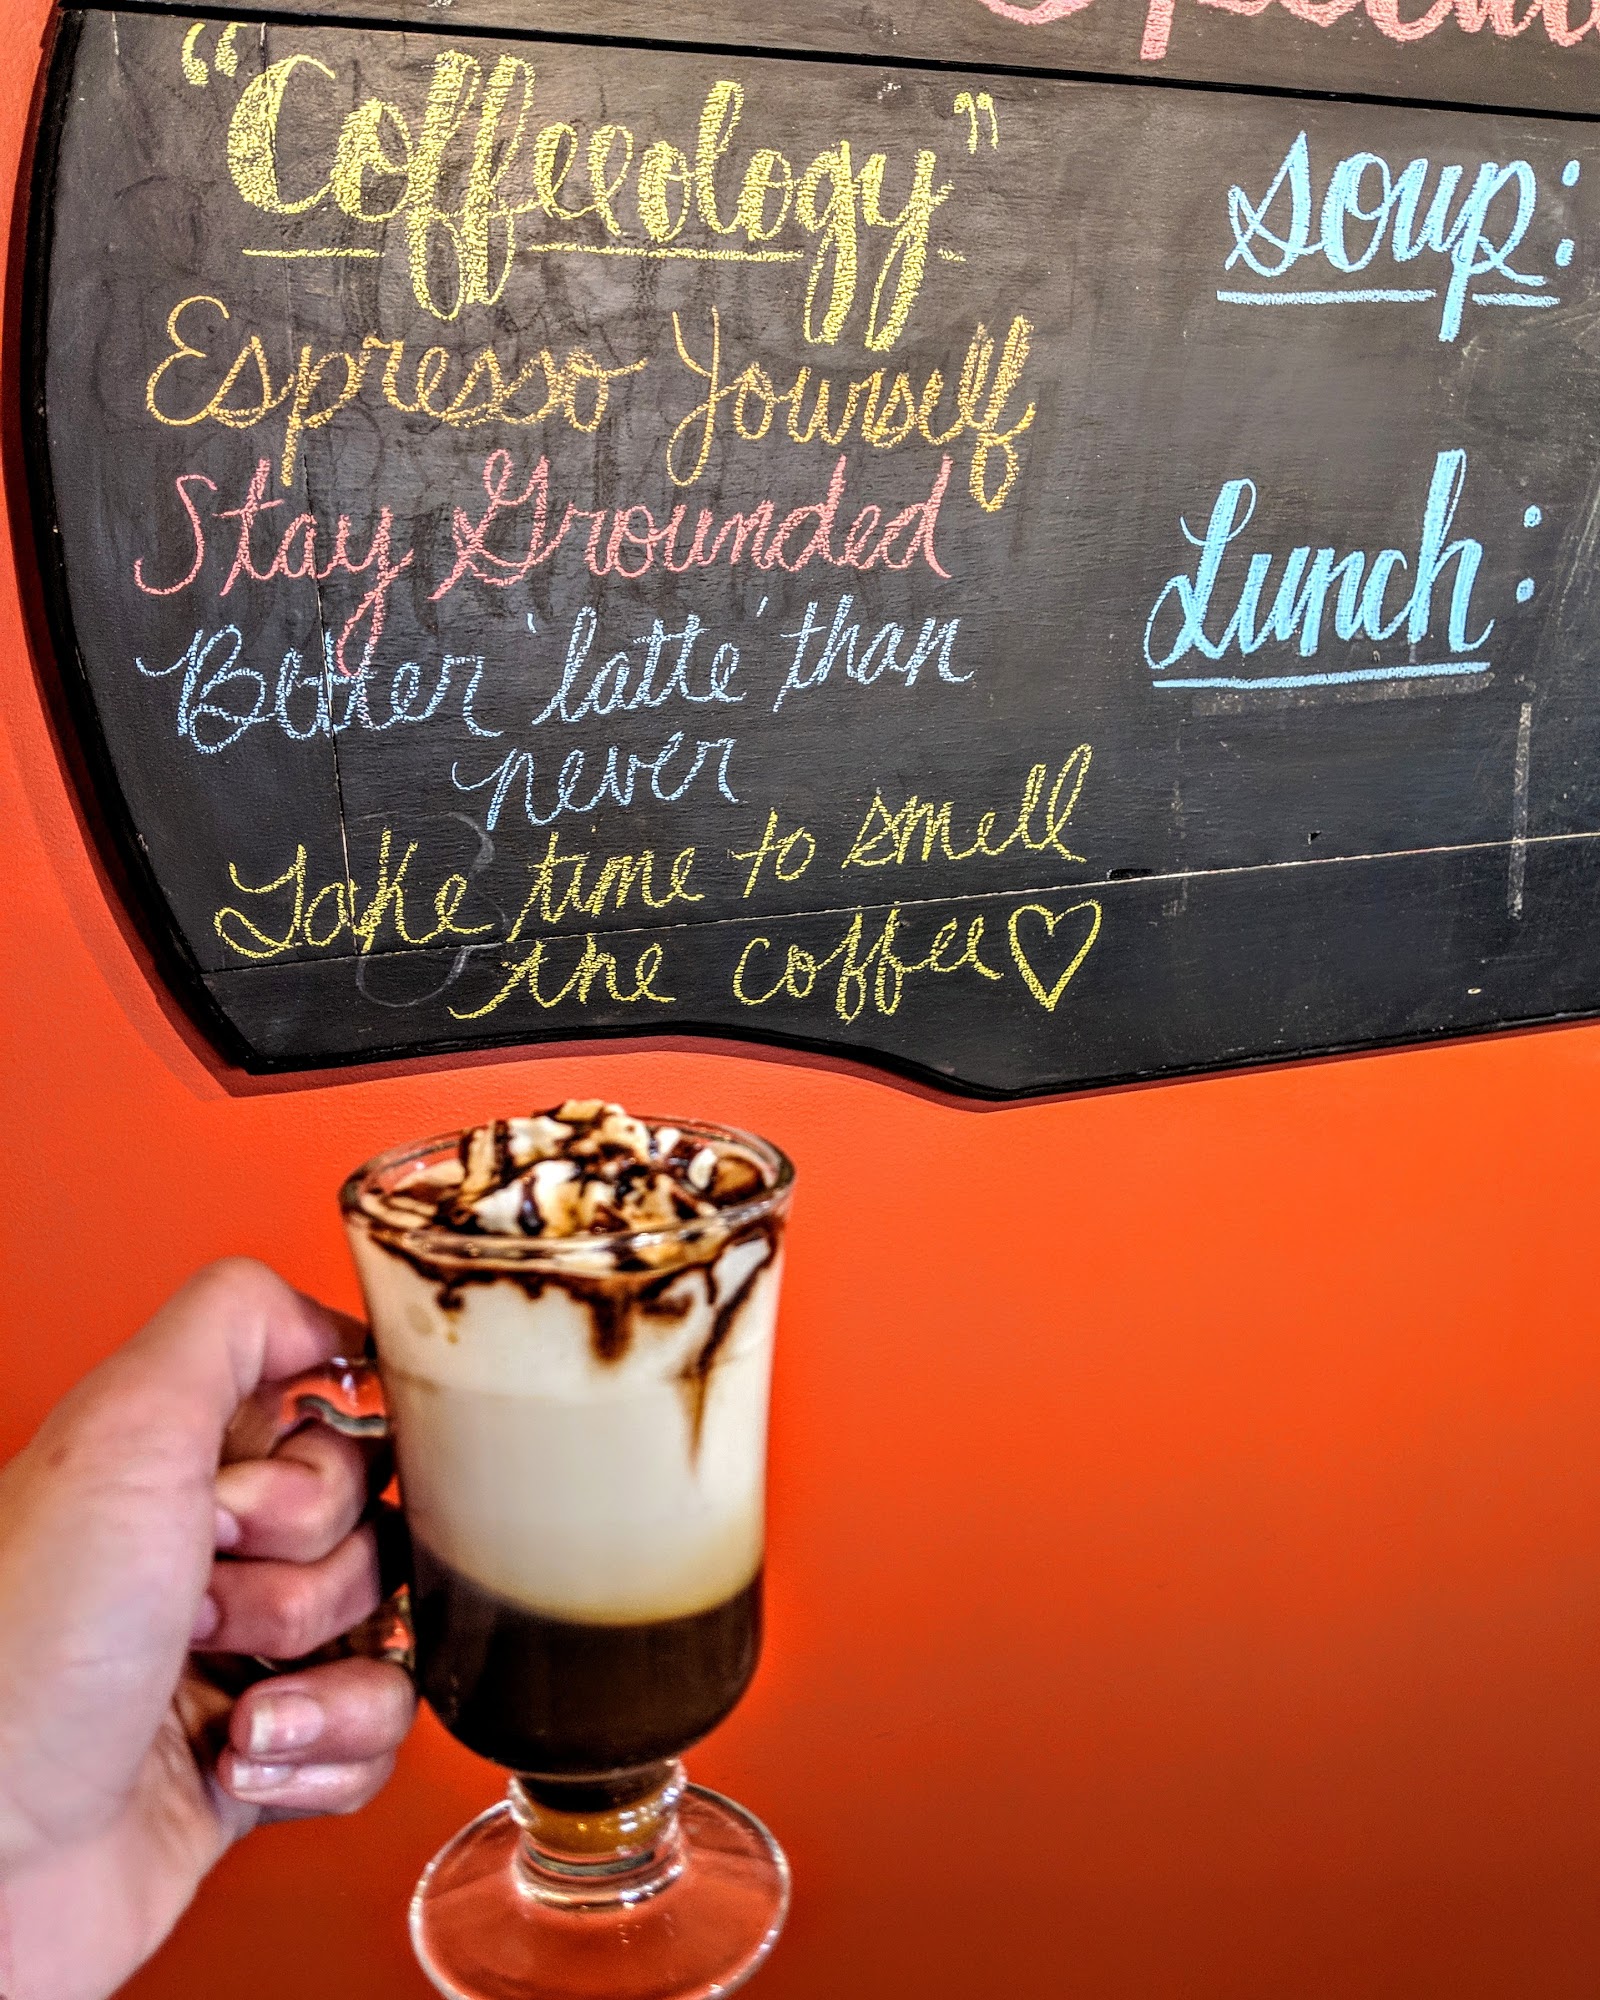 "Coffeeology"
Espresso Yourself
Stay Grounded
Better 'latte' than
never
Take time to smell
the coffee♡
Soup:
Lunch: